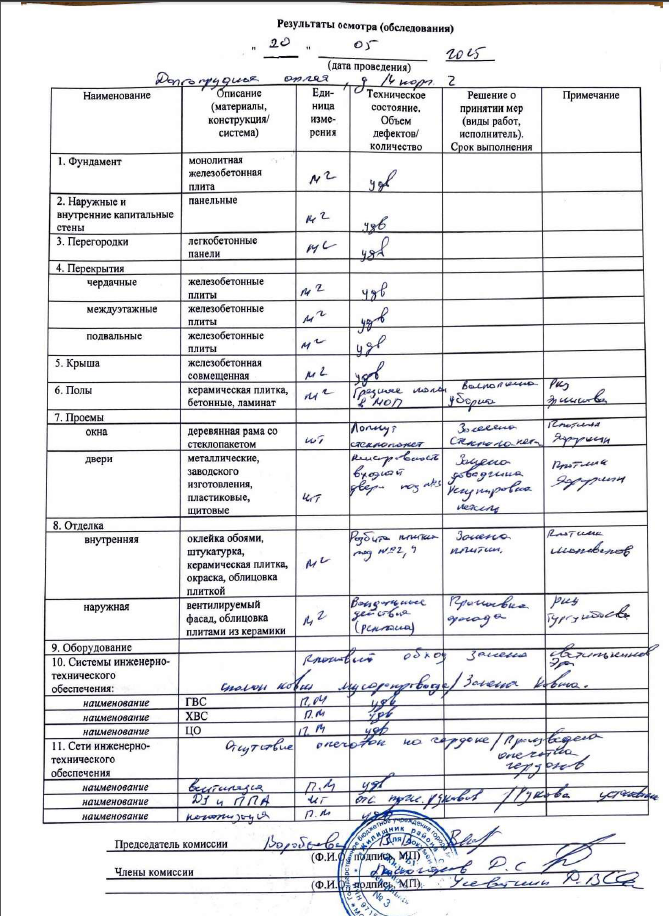 Результаты осмотра (обследования)
" 20 " 05 2025
(дата проведения)
Долгопрудная аллея, д 14 корп. 2
Наименование Описание (материалы, конструкция/ система) Еди- ница изме- рения Техническое состояние. Объем дефектов/ количество Решение о принятии мер (виды работ, исполнитель). Срок выполнения Примечание
1. Фундамент монолитная железобетонная плита м2 удв
2. Наружные и внутренние капитальные стены панельные м2 удв
3. Перегородки легкобетонные панели м2 удв
4. Перекрытия
чердачные железобетонные плиты м2 удв
междуэтажные железобетонные плиты м2 удв
подвальные железобетонные плиты м2 удв
5. Крыша железобетонная совмещенная м2 удв
6. Полы керамическая плитка, бетонные, ламинат м2 Грязные полы в МОП Выполнена уборка РКУ
7. Проемы
окна деревянная рама со стеклопакетом шт Лопнут стеклопакет Замена стеклопакета
двери металлические, заводского изготовления, пластиковые, щитовые шт входной двери под №3 Замена доводчика
8. Отделка
внутренняя оклейка обоями, штукатурка, керамическая плитка, окраска, облицовка плиткой м2 Разбита плитка под №2, 4 Замена плитки.
наружная вентилируемый фасад, облицовка плитами из керамики м2 Вандальные действия (реклама) Промывка фасада РКУ
9. Оборудование
10. Системы инженерно- технического обеспечения: Плановый обход Замена светильников
сломан ковш мусоропровода / Замена ковша.
наименование ГВС П.М удв
наименование ХВС П.М удв
наименование ЦО П.М удв
11. Сети инженерно- технического обеспечения Отсутствие опечаток на / Произведена опечатка
наименование вентиляция П.М удв
наименование ДУ и ППА шт отс. пож. рукавов / Рукава установлены
наименование канализация П.М удв
Председатель комиссии Воробьева
(Ф.И.О подпись, МП)
Члены комиссии
(Ф.И.О подпись, МП)